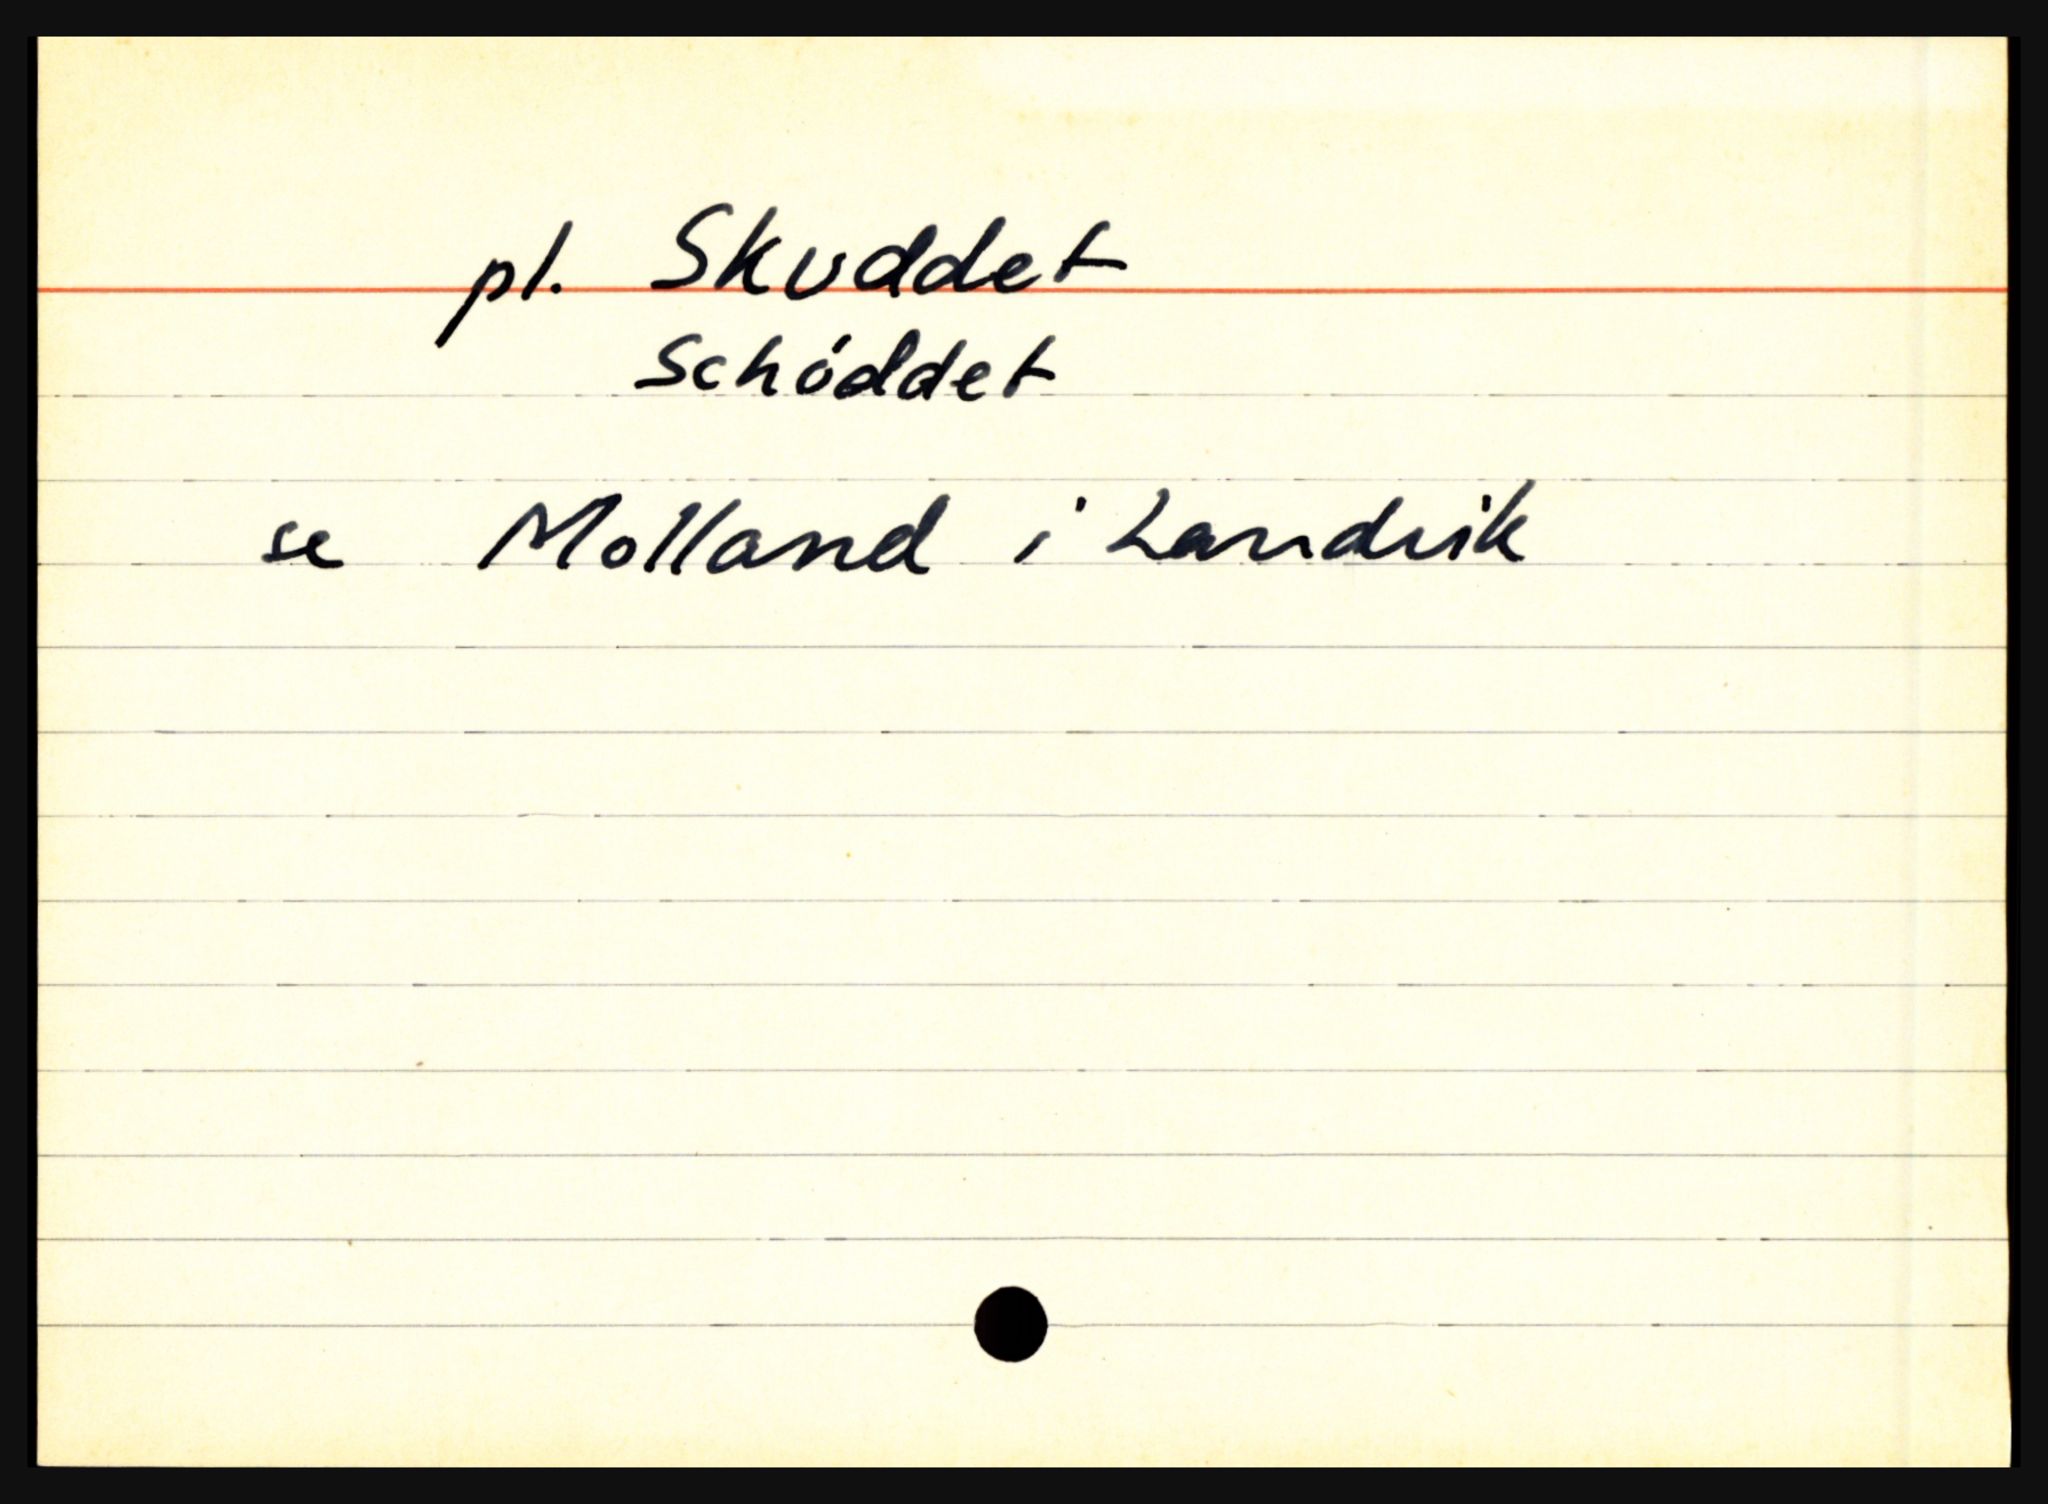 pl. Skuddet
Schóddet
se Molland i Landvik